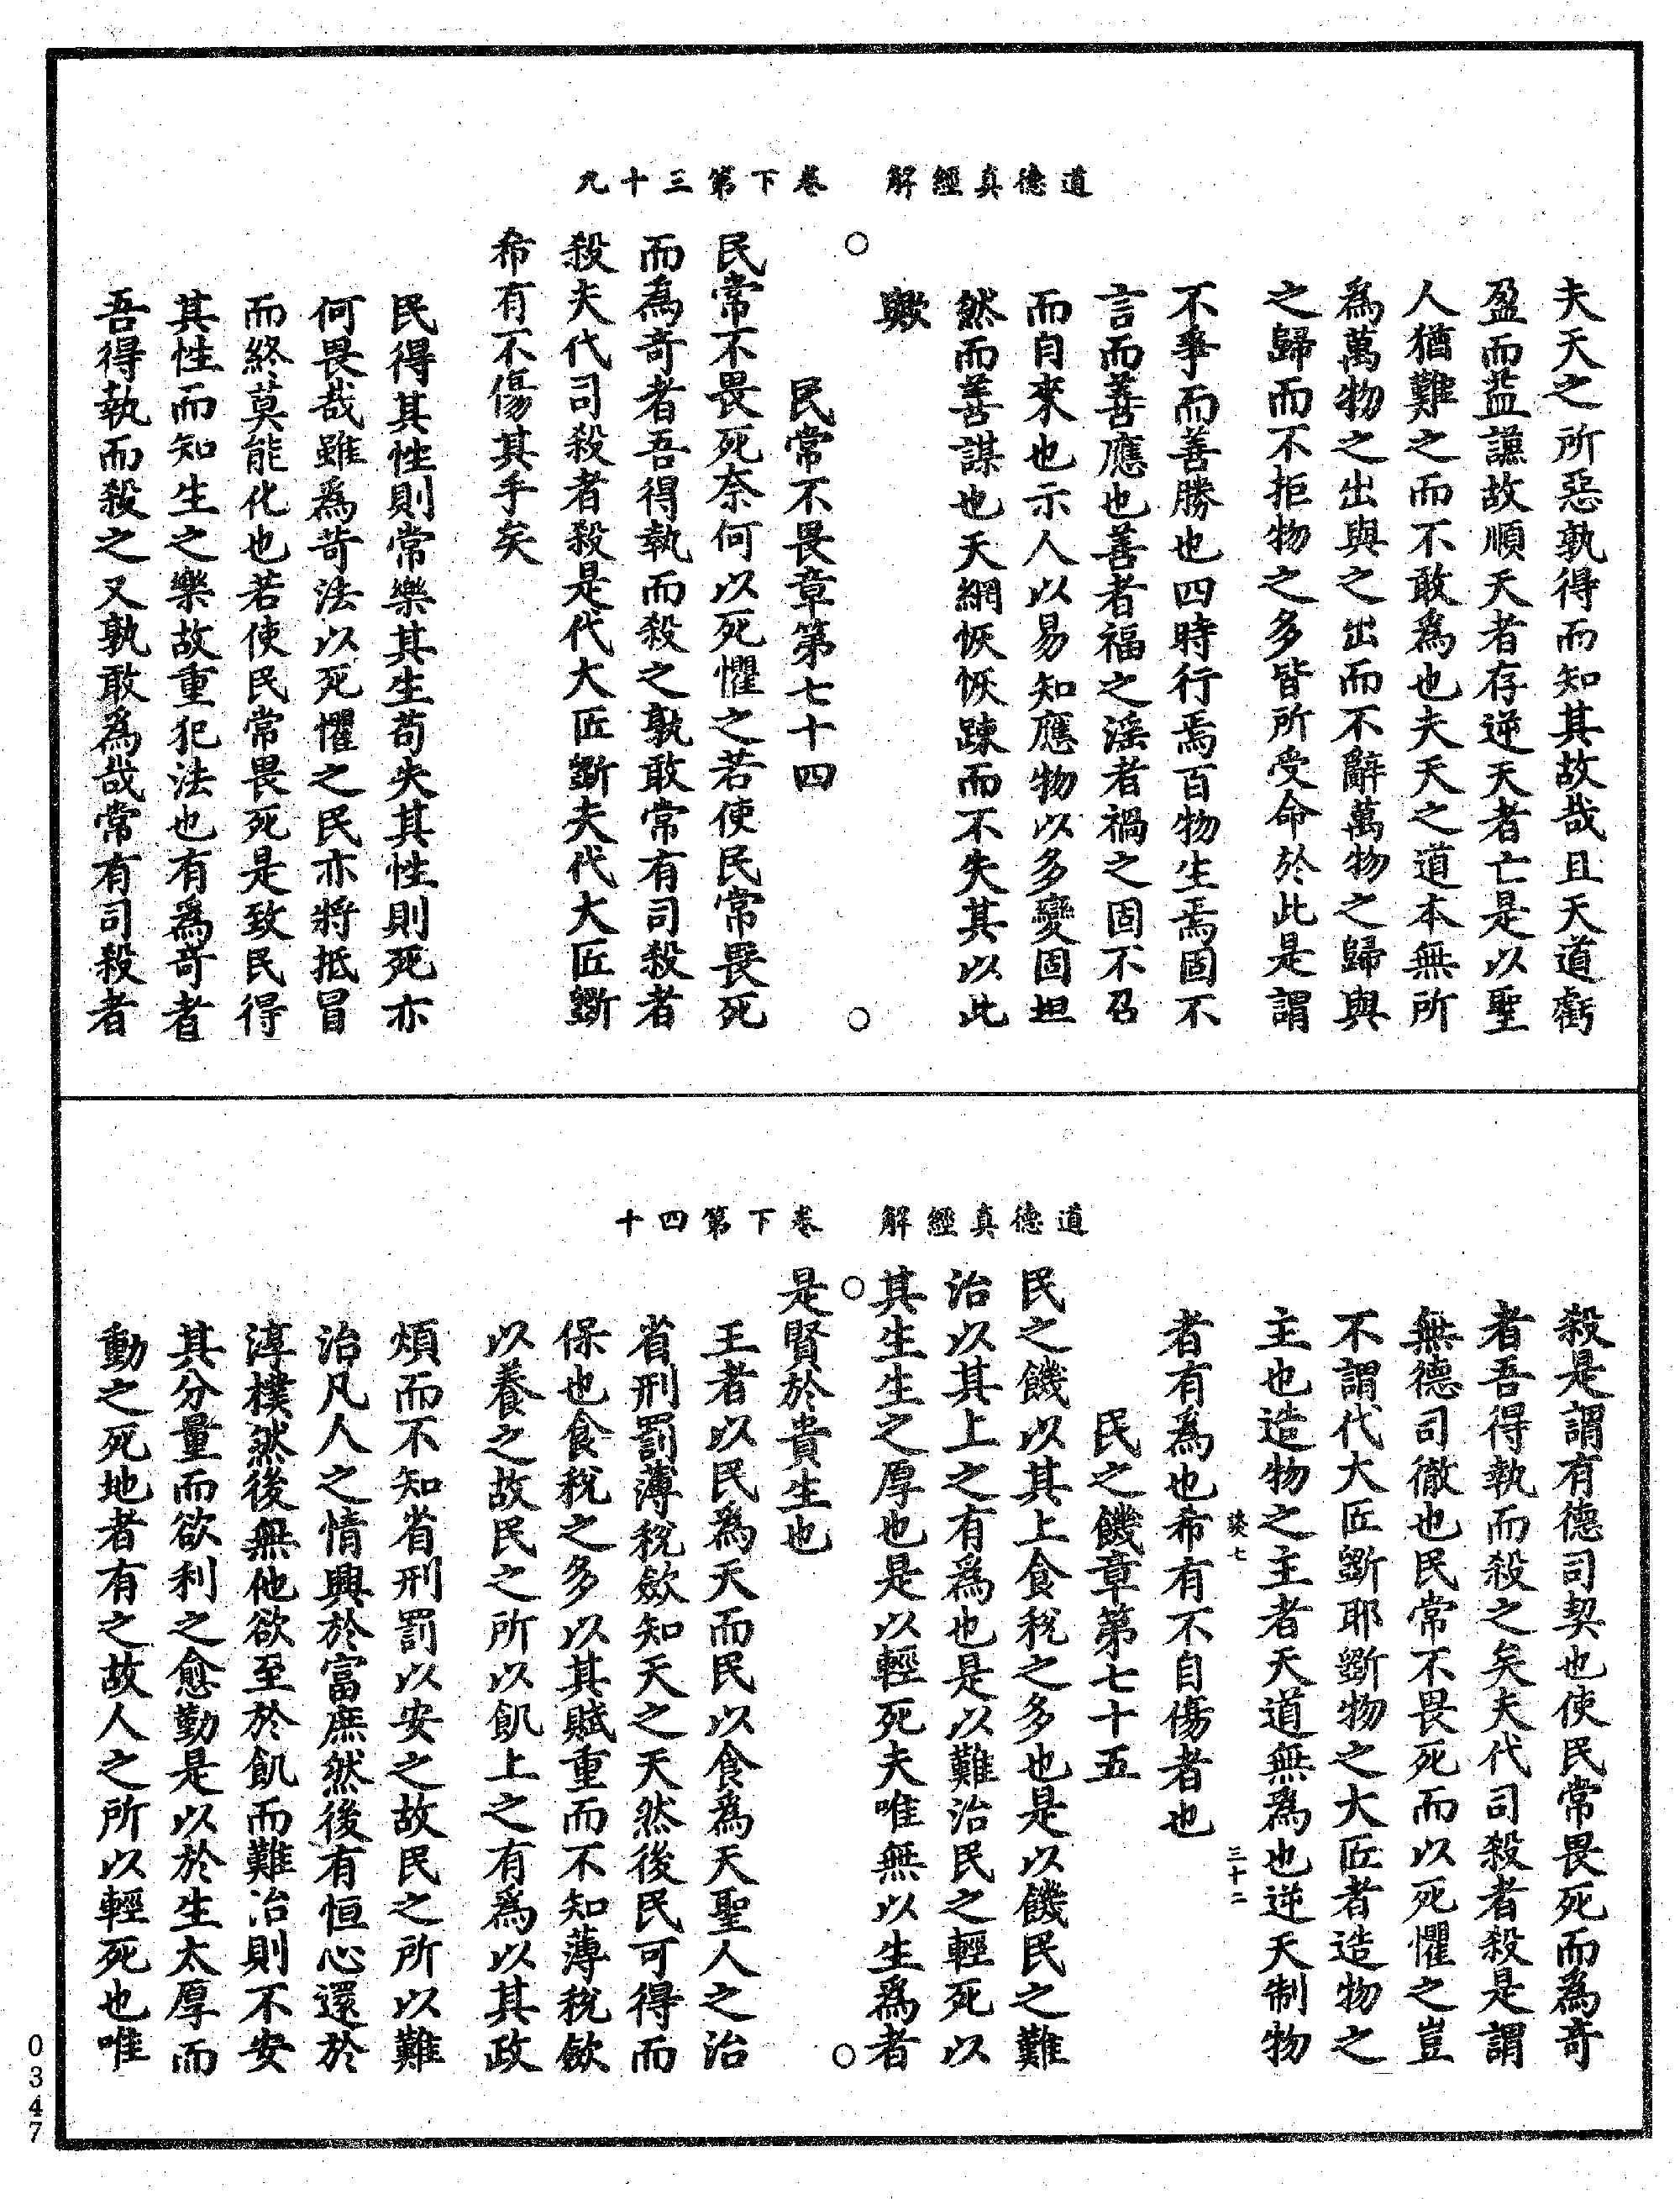 道德真經解　卷下第三十九
夫天之所惡孰得而知其故哉且天道虧
盈而益謙故順天者存逆天者亡是以聖
人猶難之而不敢為也夫天之道本無所
為萬物之出與之出而不辭萬物之歸與
之歸而不拒物之多皆所受命於此是謂
不爭而善勝也四時行焉百物生焉固不
言而善應也善者福之淫者禍之固不召
而自來也示人以易知應物以多變固坦
然而善謀也天網恢恢踈而不失其以此
歟
○　○
民常不畏章第七十四
民常不畏死奈何以死懼之若使民常畏死
而為奇者吾得執而殺之孰敢常有司殺者
殺夫代司殺者殺是代大匠斲夫代大匠斲
希有不傷其手矣
民得其性則常樂其生苟失其性則死亦
何畏哉雖為苛法以死懼之民亦將抵冒
而終莫能化也若使民常畏死是致民得
其性而知生之樂故重犯法也有為奇者
吾得執而殺之又孰敢為哉常有司殺者
道德真經解　卷下第四十
殺是謂有德司契也使民常畏死而為奇
者吾得執而殺之矣夫代司殺者殺是謂
無德司徹也民常不畏死而以死懼之豈
不謂代大匠斲耶斲物之大匠者造物之
主也造物之主者天道無為也逆天制物
七　三十二
者有為也希有不自傷者也
民之饑章第七十五
民之饑以其上食稅之多也是以饑民之難
治以其上之有為也是以難治民之輕死以
其生生之厚也是以輕死夫唯無以生為者
○　○
是賢於貴生也
王者以民為天而民以食為天聖人之治
省刑罰薄稅斂知天之天然後民可得而
保也食稅之多以其賦重而不知薄稅斂
以養之故民之所以飢上之有為以其政
煩而不知省刑罰以安之故民之所以難
治凡人之情興於富庶然後有恒心還於
淳樸然後無他欲至於飢而難治則不安
其分量而欲利之愈勤是以於生太厚而
動之死地者有之故人之所以輕死也唯
0347